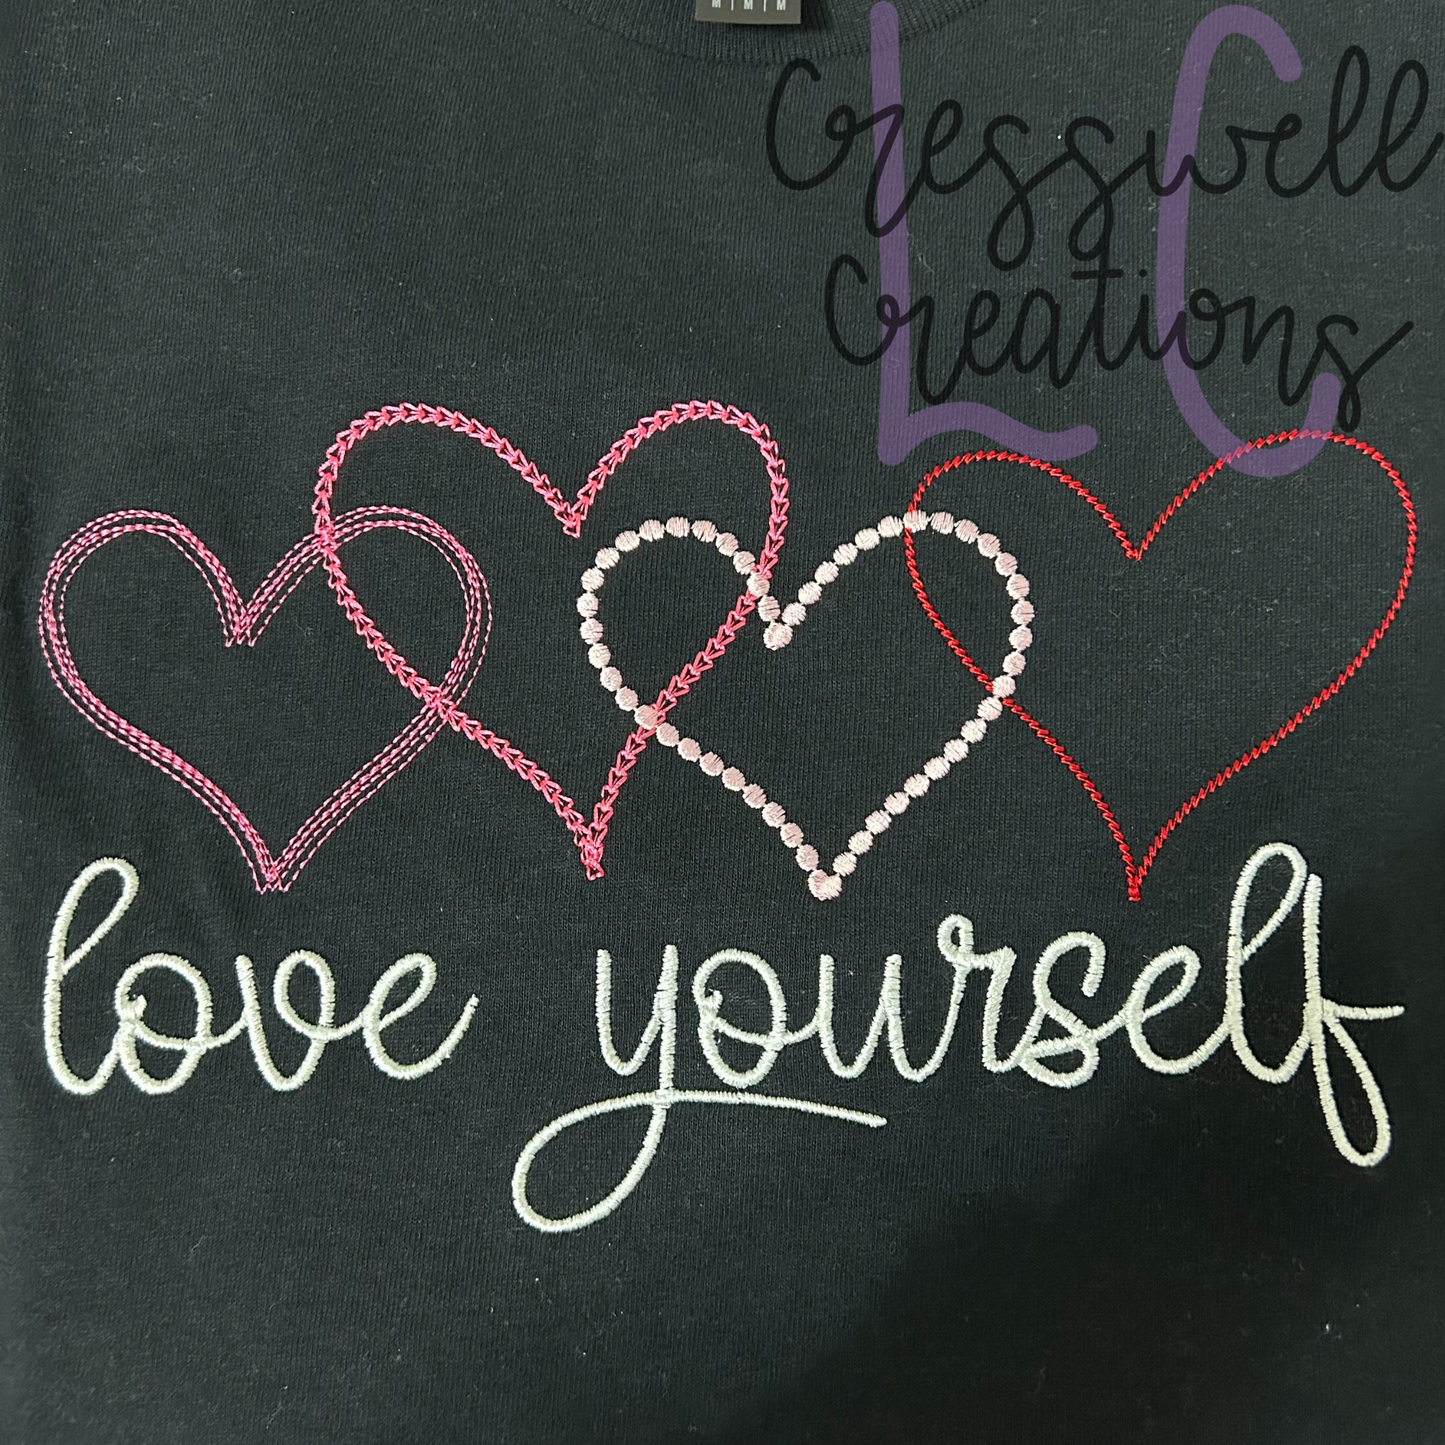 M | M | M
LC
Cresswell
Creations
love yourself